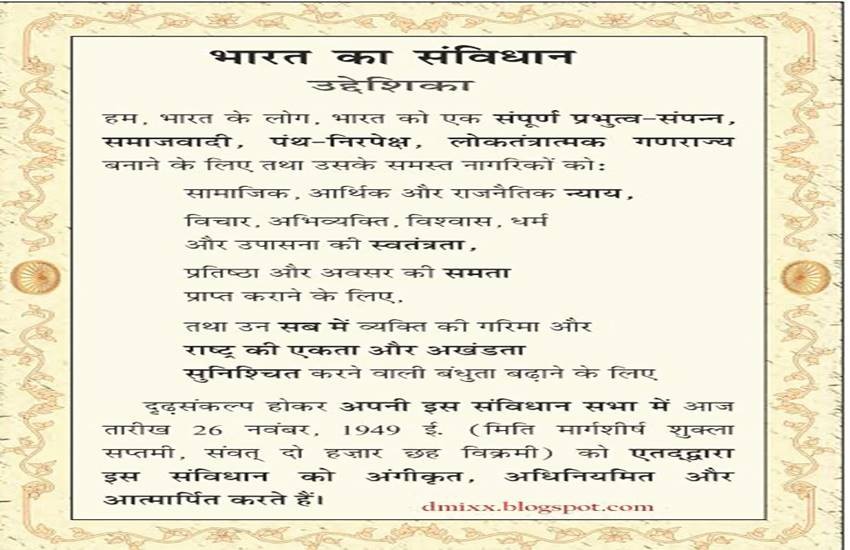 भारत का संविधान
उद्देशिका
हम, भारत के लोग, भारत को एक संपूर्ण प्रभुत्व-संपन्न,
समाजवादी, पंथ-निरपेक्ष, लोकतंत्रात्मक गणराज्य
बनाने के लिए तथा उसके समस्त नागरिकों को:
सामाजिक, आर्थिक और राजनैतिक न्याय,
विचार, अभिव्यक्ति, विश्वास, धर्म
और उपासना की स्वतंत्रता,
प्रतिष्ठा और अवसर की समता
प्राप्त कराने के लिए,
तथा उन सब में व्यक्ति की गरिमा और
राष्ट्र की एकता और अखंडता
सुनिश्चित करने वाली बंधुता बढ़ाने के लिए
दृढ़संकल्प होकर अपनी इस संविधान सभा में आज
तारीख 26 नवंबर, 1949 ई. (मिति मार्गशीर्ष शुक्ला
सप्तमी, संवत् दो हज़ार छह विक्रमी) को एतद्द्वारा
इस संविधान को अंगीकृत, अधिनियमित और
आत्मार्पित करते हैं।
dmixx.blogspot.com